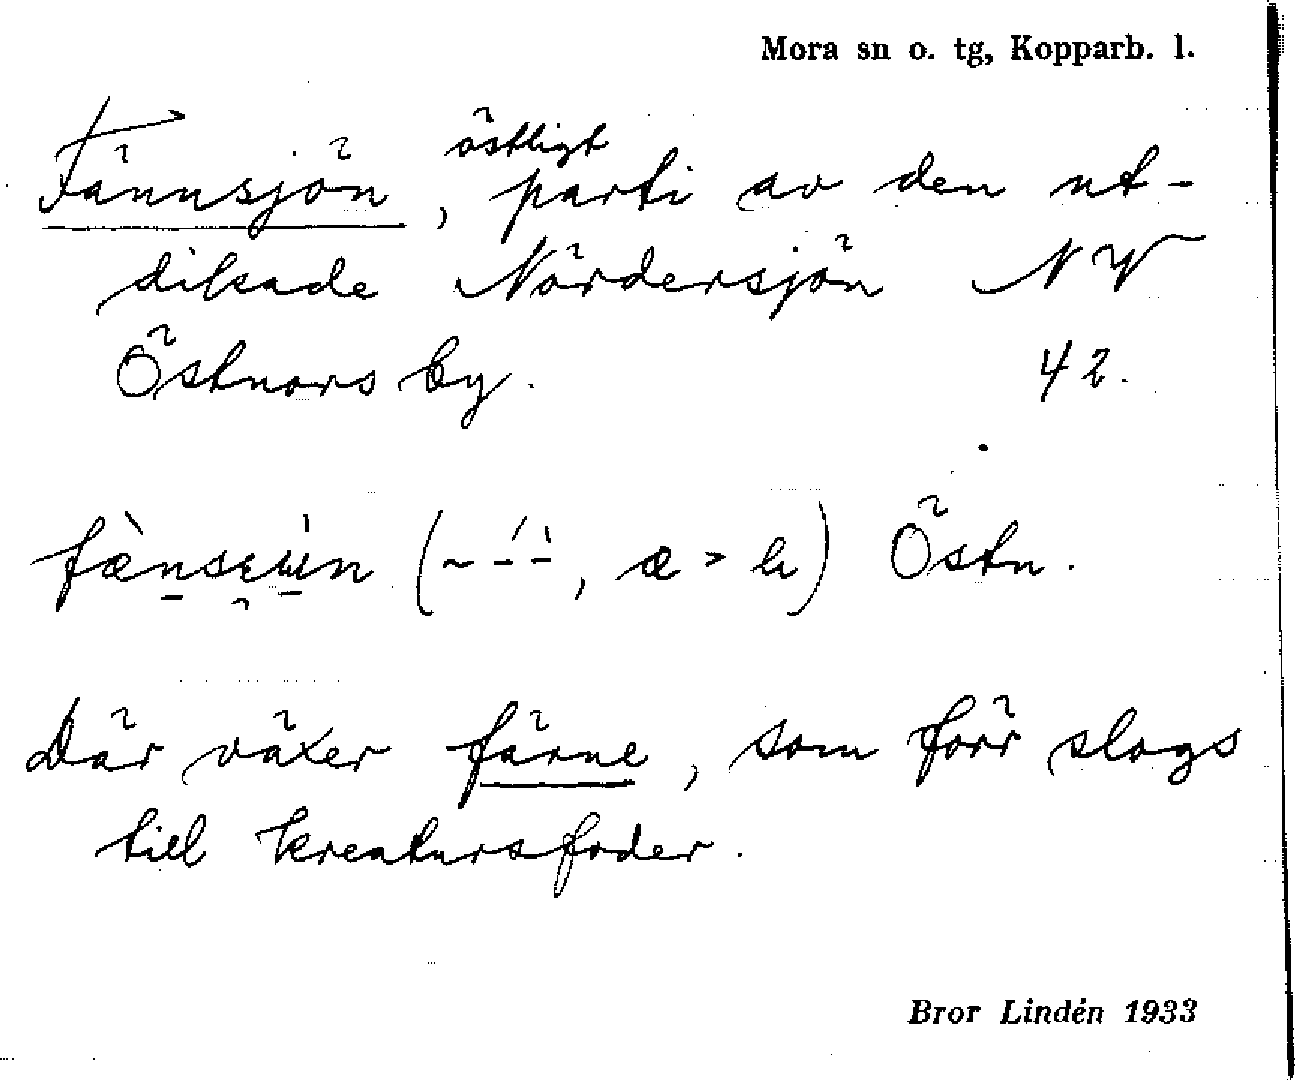 Mora sn o. tg, Kopparb. l.
Fännsjön, östligt parti av den ut-
dikade Nördersjön NV
Östnors by. 42.
(~ -́ -̀, æ > ) Östn.
Där växer färne, som förr slogs
till kreatursfoder.
Bror Lindén 1933